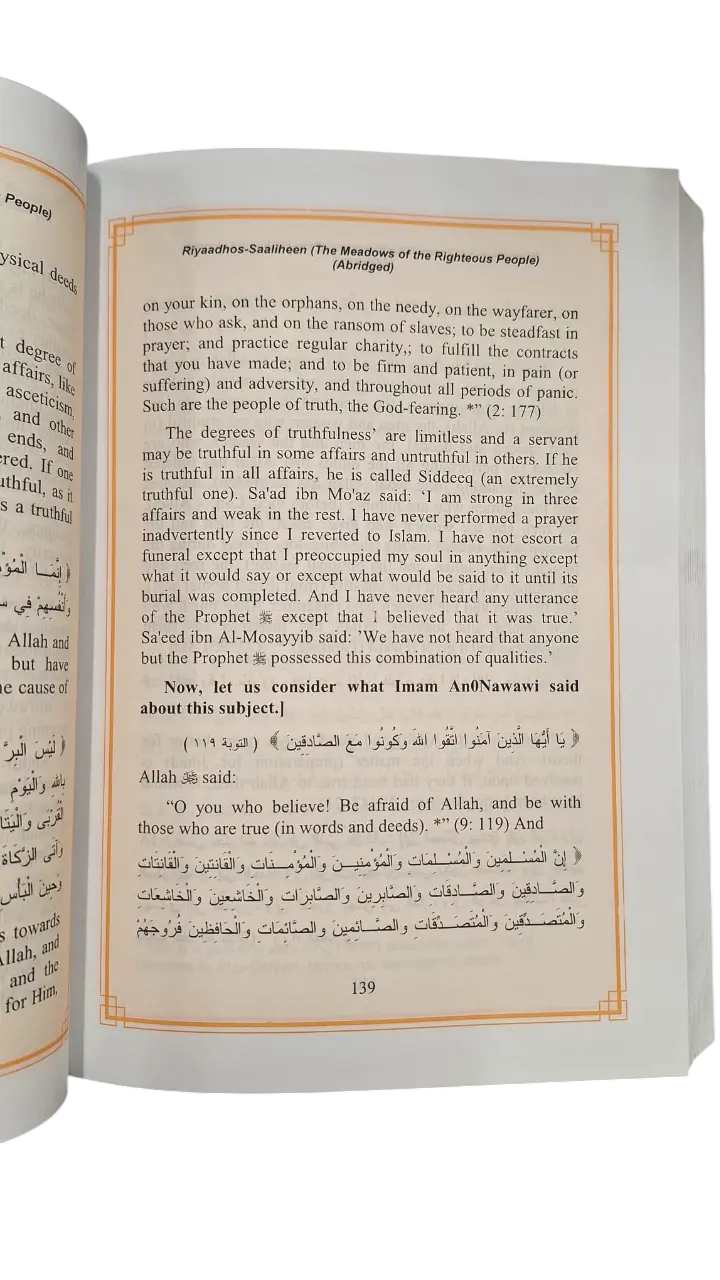 People)
ysical deeds
t degree of
affairs, like
asceticism,
and other
ends, and
red. If one
uthful, as it
s a truthful
﴿ إِنَّمَا الْمُؤْ
وَأَنْفُسِهِمْ فِي
Allah and
but have
e cause of
﴿ لَيْسَ الْبِرَّ
بِاللهِ وَالْيَوْمِ
الْقُرْبَى وَالْيَتَا
وَآتَى الزَّكَاةَ
وَحِينَ الْبَأْسِ
s towards
Allah, and
and the
for Him,
Riyaadhos-Saaliheen (The Meadows of the Righteous People)
(Abridged)
on your kin, on the orphans, on the needy, on the wayfarer, on
those who ask, and on the ransom of slaves; to be steadfast in
prayer; and practice regular charity,; to fulfill the contracts
that you have made; and to be firm and patient, in pain (or
suffering) and adversity, and throughout all periods of panic.
Such are the people of truth, the God-fearing. *” (2: 177)
The degrees of truthfulness’ are limitless and a servant
may be truthful in some affairs and untruthful in others. If he
is truthful in all affairs, he is called Siddeeq (an extremely
truthful one). Sa'ad ibn Mo'az said: ‘I am strong in three
affairs and weak in the rest. I have never performed a prayer
inadvertently since I reverted to Islam. I have not escort a
funeral except that I preoccupied my soul in anything except
what it would say or except what would be said to it until its
burial was completed. And I have never heard any utterance
of the Prophet ﷺ except that I believed that it was true.’
Sa'eed ibn Al-Mosayyib said: ’We have not heard that anyone
but the Prophet ﷺ possessed this combination of qualities.’
Now, let us consider what Imam An0Nawawi said
about this subject.]
﴿ يَا أَيُّهَا الَّذِينَ آمَنُوا اتَّقُوا اللهَ وَكُونُوا مَعَ الصَّادِقِينَ ﴾ ( التوبة ١١٩ )
Allah ﷻ said:
“O you who believe! Be afraid of Allah, and be with
those who are true (in words and deeds). *” (9: 119) And
﴿ إِنَّ الْمُسْــلِمِينَ وَالْمُسْــلِمَاتِ وَالْمُؤْمِنِيــنَ وَالْمُؤْمِــنَاتِ وَالْقَانِتِينَ وَالْقَانِتَاتِ
وَالصَّــادِقِينَ وَالصَّــادِقَاتِ وَالصَّابِرِينَ وَالصَّابِرَاتِ وَالْخَاشِعِينَ وَالْخَاشِعَاتِ
وَالْمُتَصَــدِّقِينَ وَالْمُتَصَــدِّقَاتِ وَالصَّــائِمِينَ وَالصَّائِمَاتِ وَالْحَافِظِينَ فُرُوجَهُمْ
139